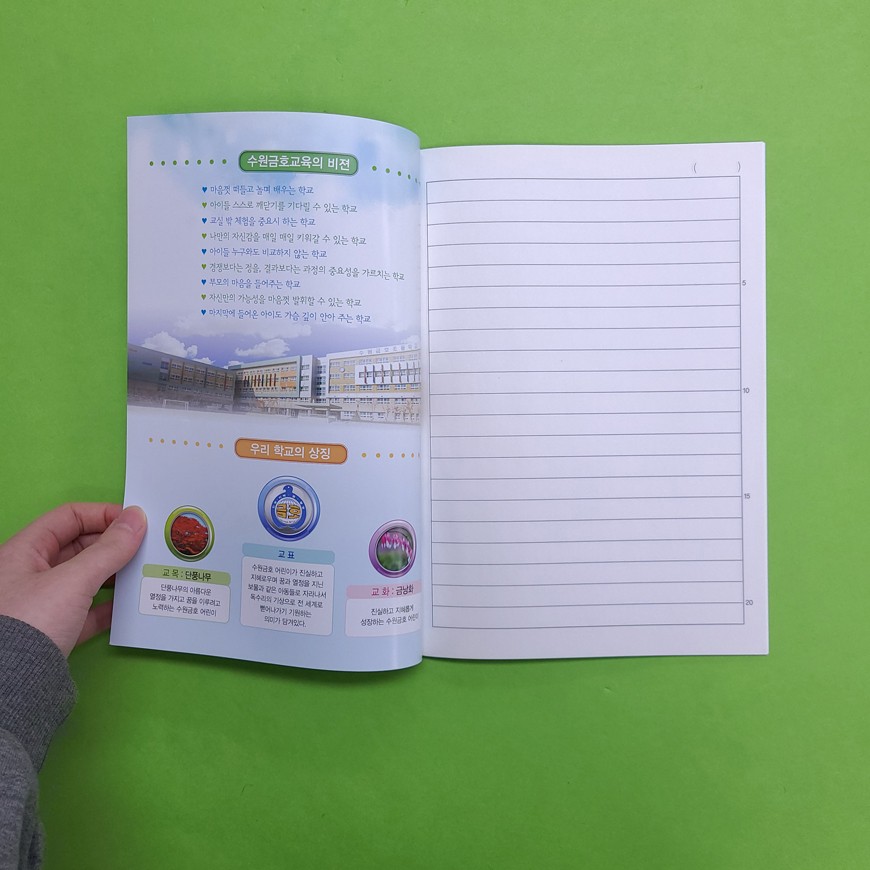 수원금호교육의 비젼
♥ 마음껏 떠들고 놀며 배우는 학교
♥ 아이들 스스로 깨닫기를 기다릴 수 있는 학교
♥ 교실 밖 체험을 중요시 하는 학교
♥ 나만의 자신감을 매일 매일 키워갈 수 있는 학교
♥ 아이들 누구와도 비교하지 않는 학교
♥ 경쟁보다는 정을, 결과보다는 과정의 중요성을 가르치는 학교
♥ 부모의 마음을 들어주는 학교
♥ 자신만의 가능성을 마음껏 발휘할 수 있는 학교
♥ 마지막에 들어온 아이도 가슴 깊이 안아 주는 학교
우리 학교의 상징
교 목 : 단풍나무
단풍나무의 아름다운
열정을 가지고 꿈을 이루려고
노력하는 수원금호 어린이
금호
교 표
수원금호 어린이가 진실하고
지혜로우며 꿈과 열정을 지닌
보물과 같은 아동들로 자라나서
독수리의 기상으로 전 세계로
뻗어나가기 기원하는
의미가 담겨있다.
교 화 : 금낭화
진실하고 지혜롭게
성장하는 수원금호 어린이
( )
5
10
15
20